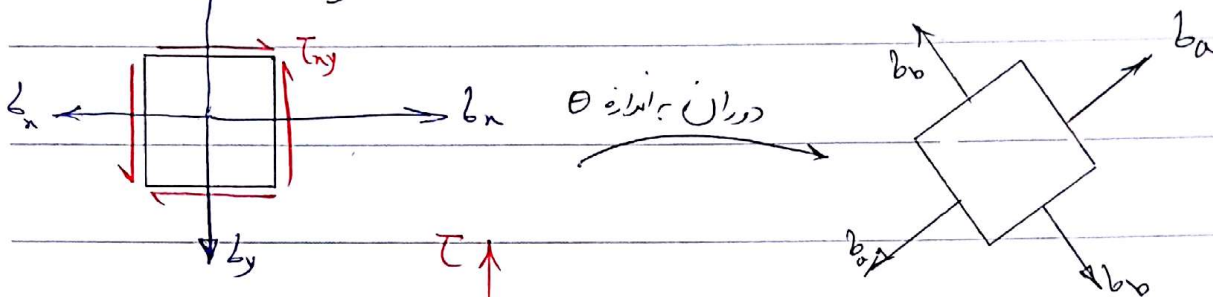 τxy
σx σx
σy
دوران به اندازه θ
σb σa
σa σb
τ